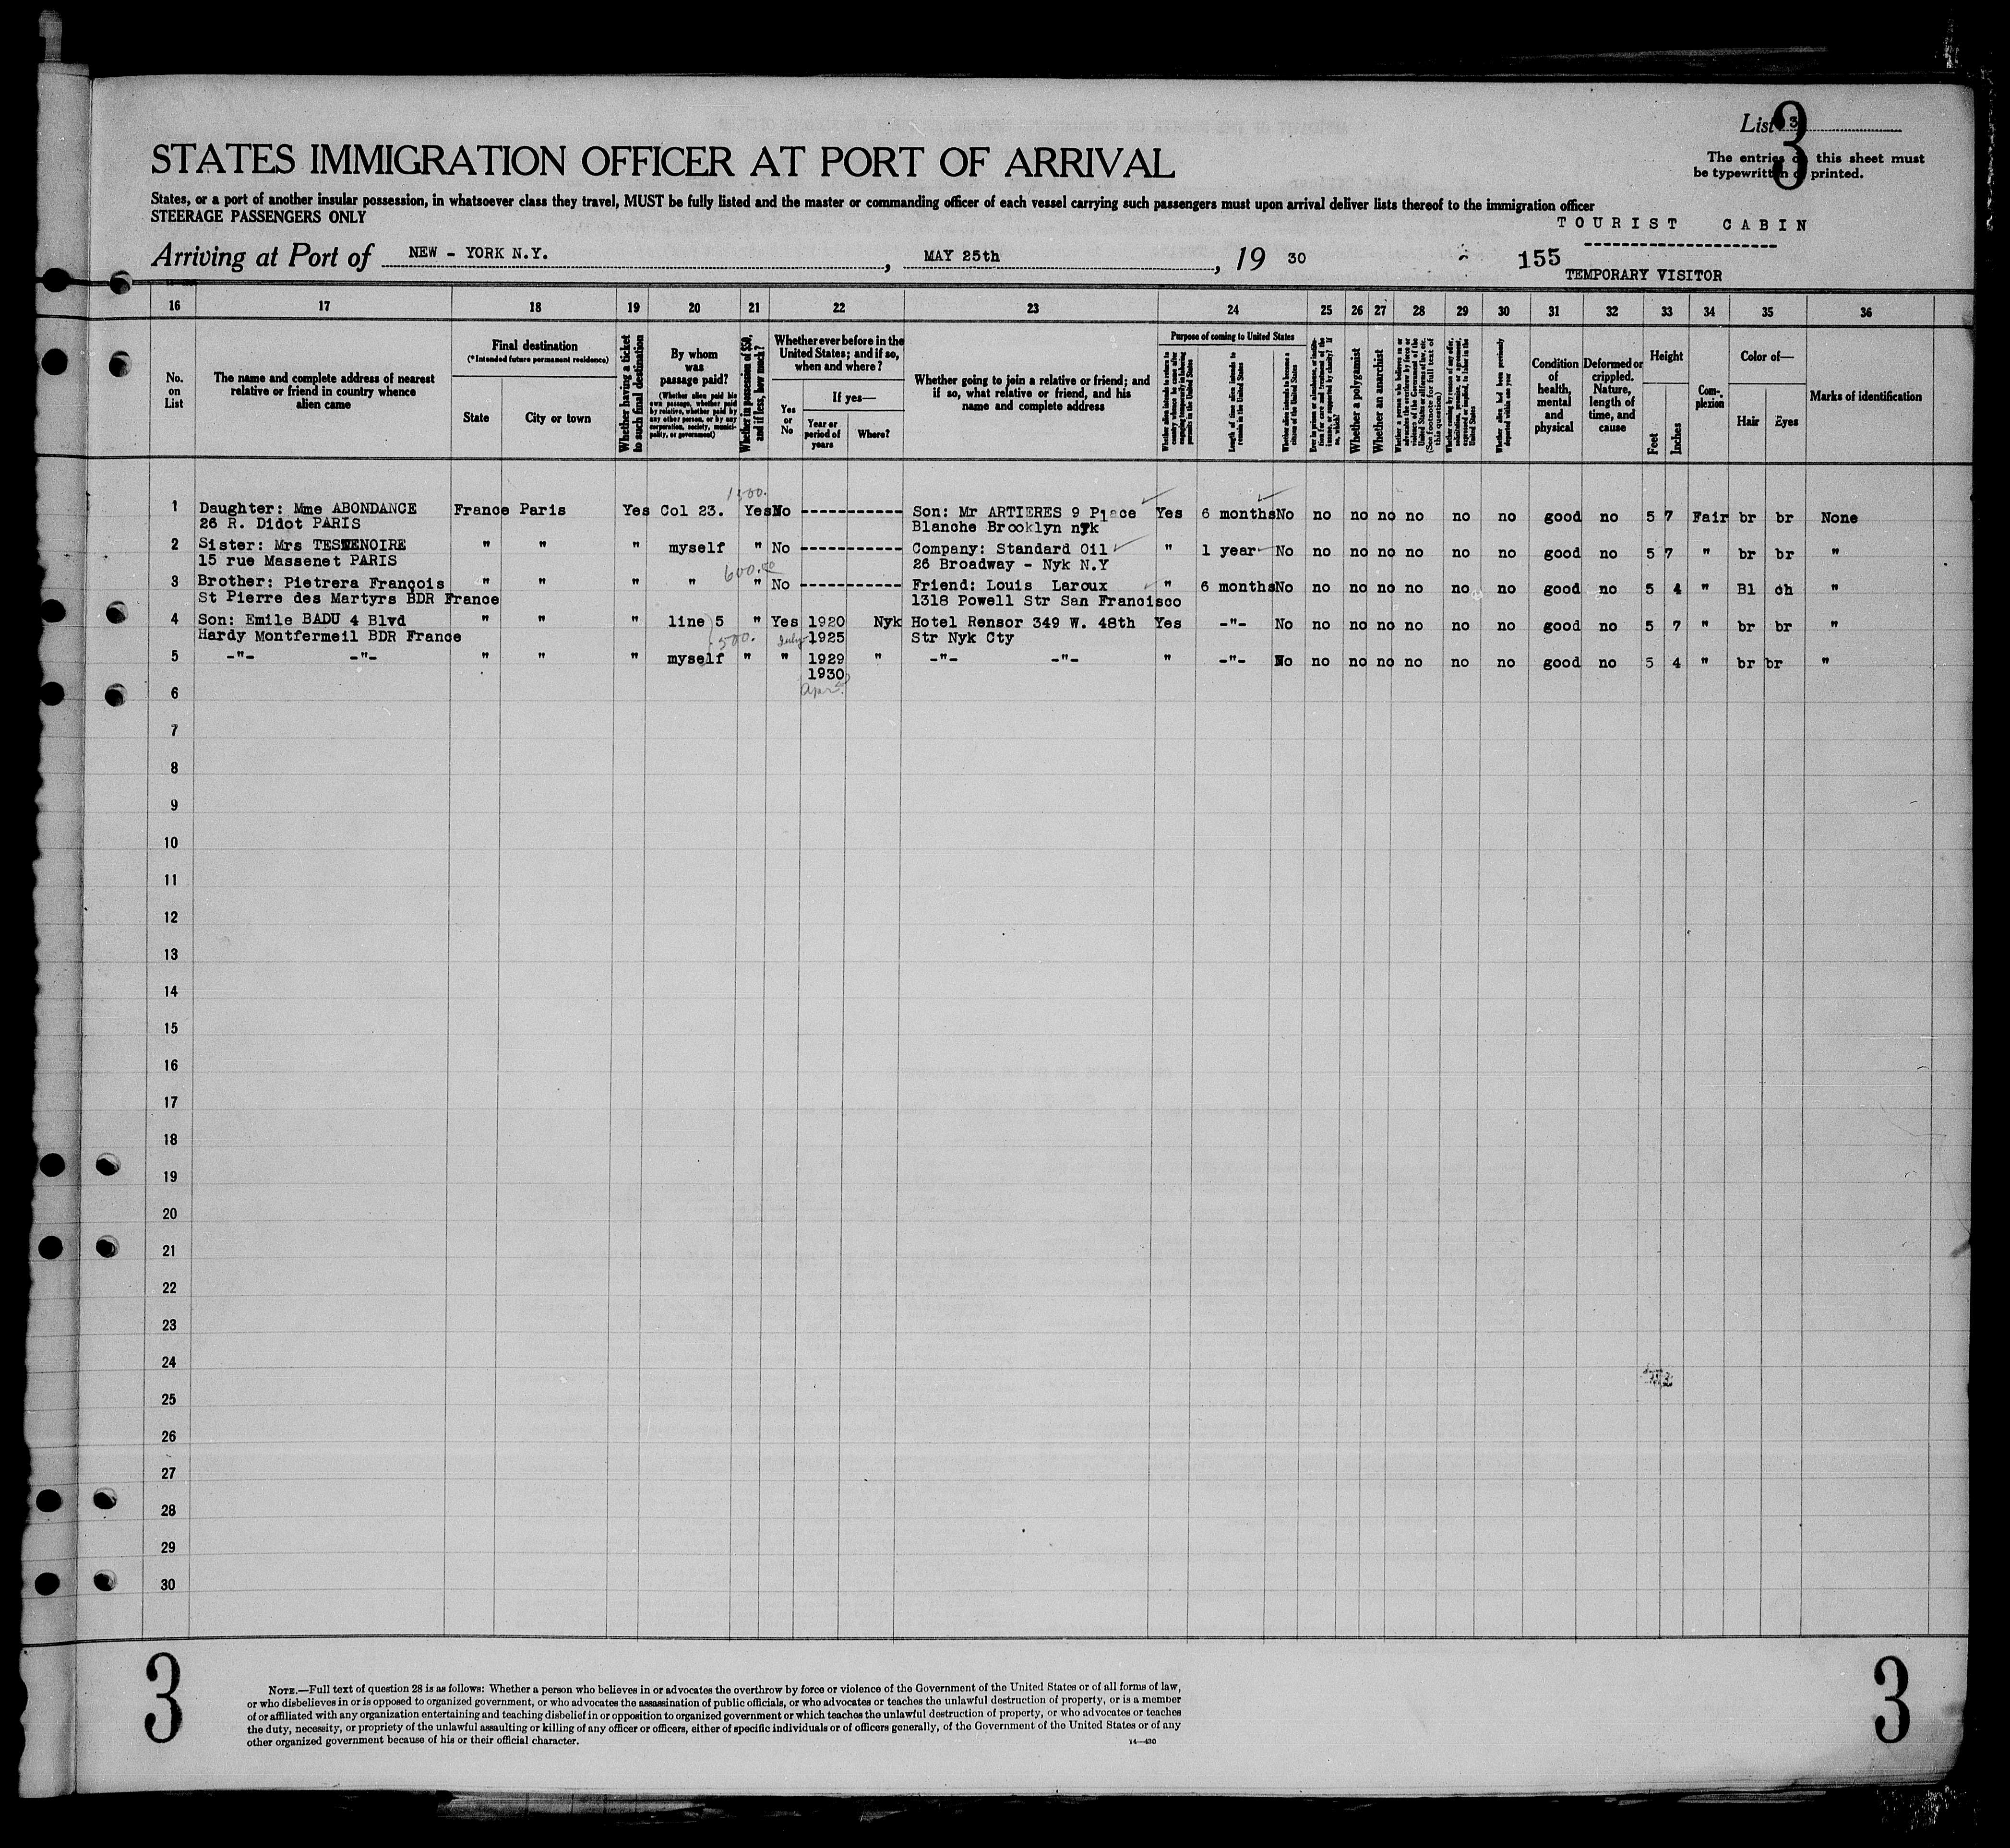 List 3
3
The entries on this sheet must
be typewritten or printed.
STATES IMMIGRATION OFFICER AT PORT OF ARRIVAL
States, or a port of another insular possession, in whatsoever class they travel, MUST be fully listed and the master or commanding officer of each vessel carrying such passengers must upon arrival deliver lists thereof to the immigration officer
STEERAGE PASSENGERS ONLY
TOURIST CABIN
Arriving at Port of NEW - YORK N.Y. , MAY 25th , 19 30
155
TEMPORARY VISITOR
16 17 18 19 20 21 22 23 24 25 26 27 28 29 30 31 32 33 34 35 36
No. on List
The name and complete address of nearest relative or friend in country whence alien came
Final destination
(*Intended future permanent residence)
State
City or town
Whether having a ticket to such final destination
By whom was passage paid?
(Whether alien paid his own passage, whether paid by relative, whether paid by any other person, or by any corporation, society, municipality, or government)
Whether in possession of $50, and if less, how much?
Whether ever before in the United States; and if so, when and where?
Yes or No
If yes—
Year or period of years
Where?
Whether going to join a relative or friend; and if so, what relative or friend, and his name and complete address
Purpose of coming to United States
Whether alien intends to return to country whence he came after engaging temporarily in laboring pursuits in the United States
Length of time alien intends to remain in the United States
Whether alien intends to become a citizen of the United States
Ever in prison or almshouse, or institution for care and treatment of the insane, or supported by charity? If so, which?
Whether a polygamist
Whether an anarchist
Whether a person who believes in or advocates the overthrow by force or violence of the Government of the United States or all forms of law, etc. (See footnote for full text of this question)
Whether coming by reason of any offer, solicitation, promise, or agreement, expressed or implied, to labor in the United States
Whether alien had been previously deported within one year
Condition of health, mental and physical
Deformed or crippled. Nature, length of time, and cause
Height
Feet
Inches
Complexion
Color of—
Hair
Eyes
Marks of identification
1500.
1 Daughter: Mme ABONDANCE France Paris Yes Col 23. Yes No ----------- Son: Mr ARTIERES 9 Place Yes 6 months No no no no no no no good no 5 7 Fair br br None
26 R. Didot PARIS Blanche Brooklyn nyk
2 Sister: Mrs TESTENOIRE " " " myself " No ----------- Company: Standard Oil " 1 year No no no no no no no good no 5 7 " br br "
15 rue Massenet PARIS 26 Broadway - Nyk N.Y
600.00
3 Brother: Pietrera François " " " " " No ----------- Friend: Louis Laroux " 6 months No no no no no no no good no 5 4 " Bl ch "
St Pierre des Martyrs BDR France 1318 Powell Str San Francisco
4 Son: Emile BADU 4 Blvd " " " line 5 " Yes 1920 Nyk Hotel Rensor 349 W. 48th Yes -"- No no no no no no no good no 5 7 " br br "
Hardy Montfermeil BDR France 500. July 1925 Str Nyk Cty
5 -"- -"- " " " myself " " 1929 " -"- -"- " -"- No no no no no no no good no 5 4 " br br "
1930
6 Apr
7
8
9
10
11
12
13
14
15
16
17
18
19
20
21
22
23
24
25
26
27
28
29
30
3
NOTE.—Full text of question 28 is as follows: Whether a person who believes in or advocates the overthrow by force or violence of the Government of the United States or of all forms of law,
or who disbelieves in or is opposed to organized government, or who advocates the assassination of public officials, or who advocates or teaches the unlawful destruction of property, or is a member
of or affiliated with any organization entertaining and teaching disbelief in or opposition to organized government or which teaches the unlawful destruction of property, or who advocates or teaches
the duty, necessity, or propriety of the unlawful assaulting or killing of any officer or officers, either of specific individuals or of officers generally, of the Government of the United States or of any
other organized government because of his or their official character.
14—430
3